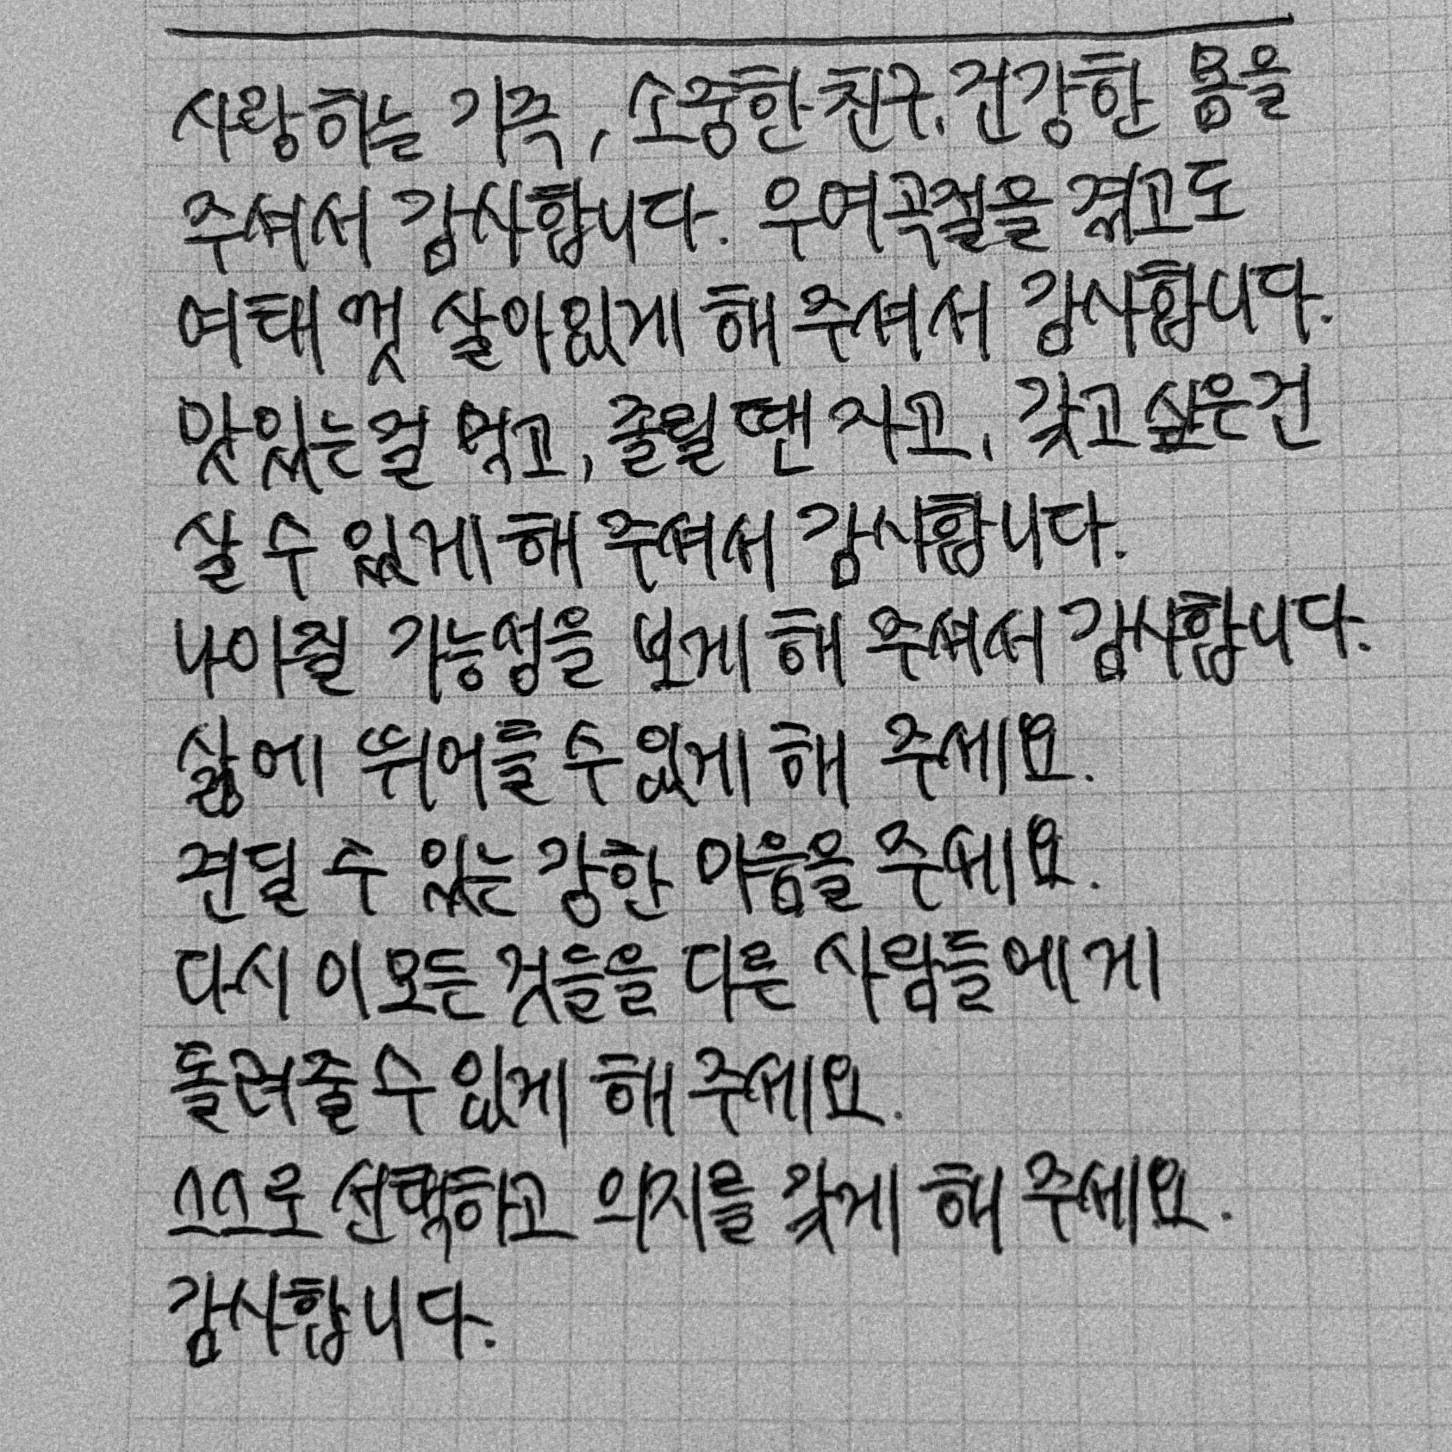 사랑하는 가족, 소중한 친구, 건강한 몸을
주셔서 감사합니다. 우여곡절을 겪고도
여태껏 살아있게 해 주셔서 감사합니다.
맛있는 걸 먹고, 졸릴 땐 자고, 갖고 싶은 건
살 수 있게 해 주셔서 감사합니다.
나아질 가능성을 보게 해 주셔서 감사합니다.
삶에 뛰어들 수 있게 해 주세요.
견딜 수 있는 강한 마음을 주세요.
다시 이 모든 것들을 다른 사람들에게
돌려줄 수 있게 해 주세요.
스스로 선택하고 의지를 갖게 해 주세요.
감사합니다.